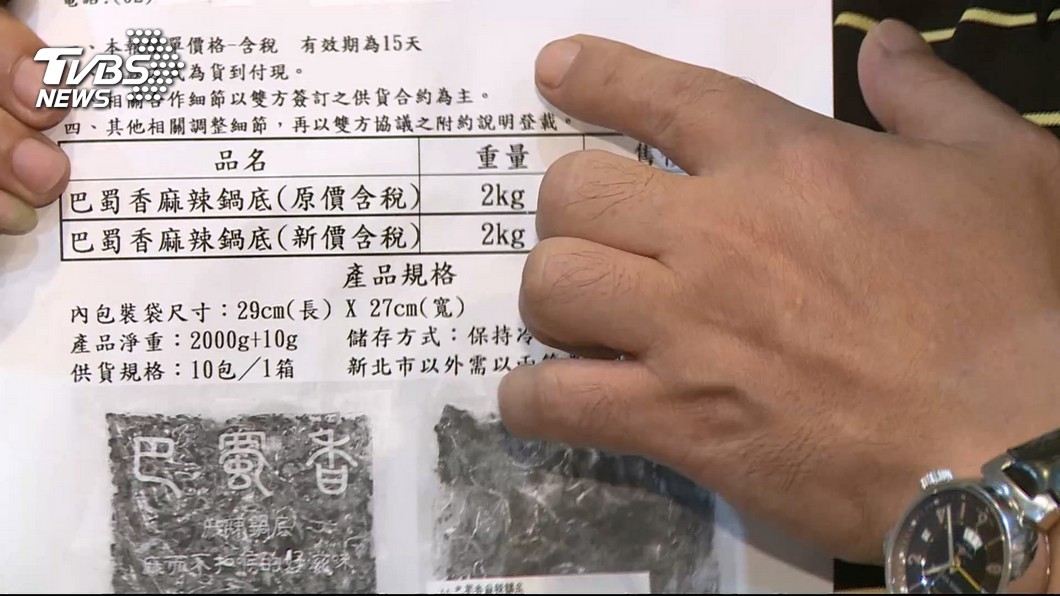 TVBS
NEWS
單價格-含稅 有效期為15天
為貨到付現。
相關合作細節以雙方簽訂之供貨合約為主。
四、其他相關調整細節，再以雙方協議之附約說明登載。
品名 重量 售
巴蜀香麻辣鍋底(原價含稅) 2kg
巴蜀香麻辣鍋底(新價含稅) 2kg
產品規格
內包裝袋尺寸：29cm(長) X 27cm(寬)
產品淨重：2000g+10g 儲存方式：保持冷
供貨規格：10包／1箱 新北市以外需以
巴蜀香
麻辣鍋底
麻而不 的好滋味